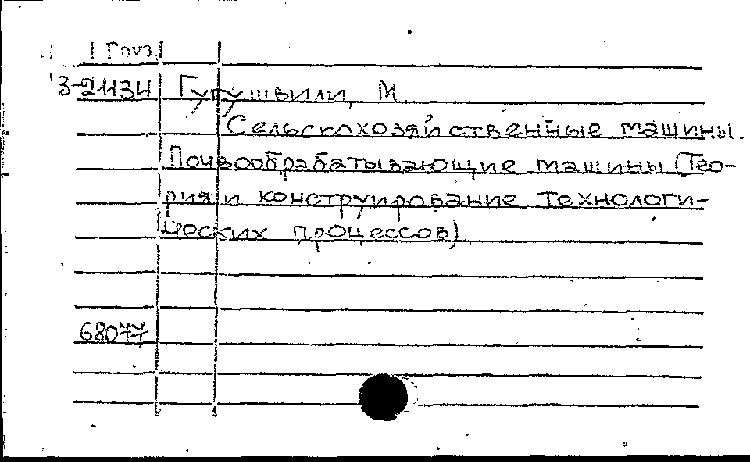 1 Груз
3-21134 Гугушвили, М.
Сельскохозяйственные машины.
Почвообрабатывающие машины (Тео-
рия и конструирование технологи-
ческих процессов)
68077